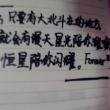 只要有大北斗在的地方
就会有漫天星光陪你璀璨
恒星陪你闪耀。Forever